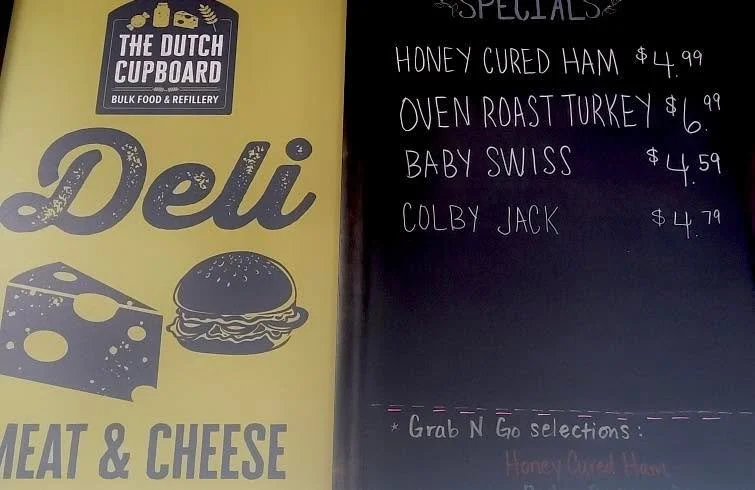 THE DUTCH
CUPBOARD
BULK FOOD & REFILLERY
Deli
MEAT & CHEESE
SPECIALS
HONEY CURED HAM $4.99
OVEN ROAST TURKEY $6.99
BABY SWISS $4.59
COLBY JACK $4.79
* Grab N Go selections:
Honey Cured Ham